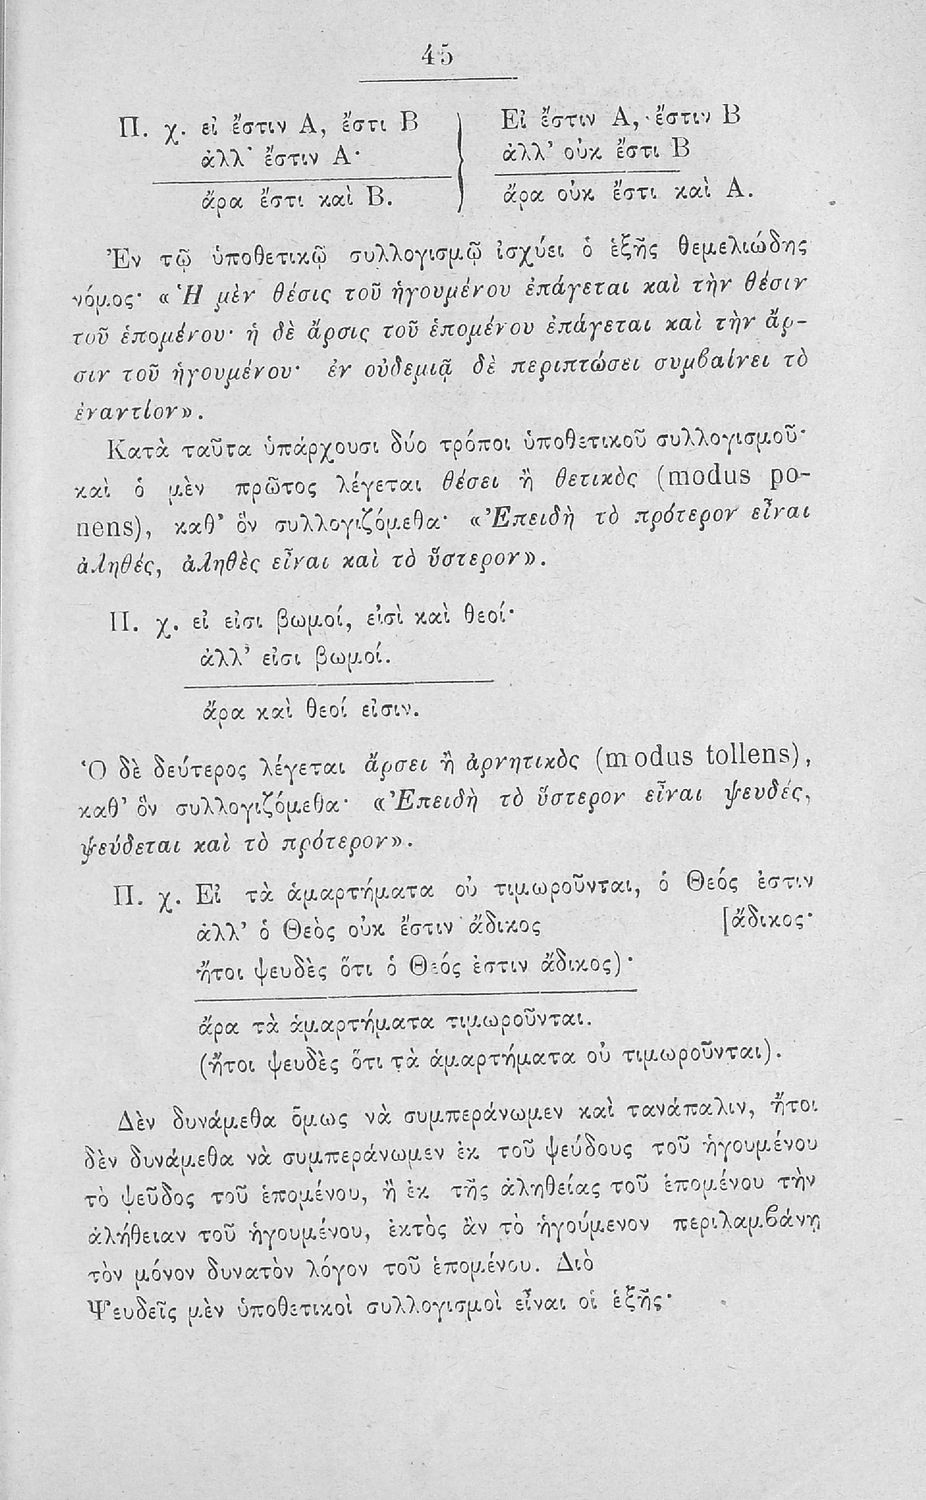 45
Π. χ. εἰ ἔστιν Α, ἔστι Β
ἀλλ' ἔστιν Α·
ἄρα ἔστι καὶ Β.
Εἰ ἔστιν Α, ἔστιν Β
ἀλλ' οὐκ ἔστι Β
ἄρα οὐκ ἔστι καὶ Α.
Ἐν τῷ ὑποθετικῷ συλλογισμῷ ἰσχύει ὁ ἑξῆς θεμελιώδης
νόμος· «Ἡ μὲν θέσις τοῦ ἡγουμένου ἐπάγεται καὶ τὴν θέσιν
τοῦ ἑπομένου· ἡ δὲ ἄρσις τοῦ ἑπομένου ἐπάγεται καὶ τὴν ἄρ-
σιν τοῦ ἡγουμένου· ἐν οὐδεμιᾷ δὲ περιπτώσει συμβαίνει τὸ
ἐναντίον».
Κατὰ ταῦτα ὑπάρχουσι δύο τρόποι ὑποθετικοῦ συλλογισμοῦ·
καὶ ὁ μὲν πρῶτος λέγεται θέσει ἢ θετικὸς (modus po-
nens), καθ' ὃν συλλογιζόμεθα· «Ἐπειδὴ τὸ πρότερον εἶναι
ἀληθές, ἀληθὲς εἶναι καὶ τὸ ὕστερον».
Π. χ. εἰ εἰσι βωμοί, εἰσὶ καὶ θεοί·
ἀλλ' εἰσι βωμοί.
ἄρα καὶ θεοί εἰσιν.
Ὁ δὲ δεύτερος λέγεται ἄρσει ἢ ἀρνητικὸς (modus tollens),
καθ' ὃν συλλογιζόμεθα· «Ἐπειδὴ τὸ ὕστερον εἶναι ψευδές,
ψεύδεται καὶ τὸ πρότερον».
Π. χ. Εἰ τὰ ἁμαρτήματα οὐ τιμωροῦνται, ὁ Θεός ἐστιν
ἀλλ' ὁ Θεὸς οὐκ ἔστιν ἄδικος [ἄδικος·
ἤτοι ψευδὲς ὅτι ὁ Θεός ἐστιν ἄδικος)·
ἄρα τὰ ἁμαρτήματα τιμωροῦνται.
(ἤτοι ψευδὲς ὅτι τὰ ἁμαρτήματα οὐ τιμωροῦνται).
Δὲν δυνάμεθα ὅμως νὰ συμπεράνωμεν καὶ τανάπαλιν, ἤτοι
δὲν δυνάμεθα νὰ συμπεράνωμεν ἐκ τοῦ ψεύδους τοῦ ἡγουμένου
τὸ ψεῦδος τοῦ ἑπομένου, ἢ ἐκ τῆς ἀληθείας τοῦ ἑπομένου τὴν
ἀλήθειαν τοῦ ἡγουμένου, ἐκτὸς ἂν τὸ ἡγούμενον περιλαμβάνῃ
τὸν μόνον δυνατὸν λόγον τοῦ ἑπομένου. Διὸ
Ψευδεῖς μὲν ὑποθετικοὶ συλλογισμοὶ εἶναι οἱ ἑξῆς·